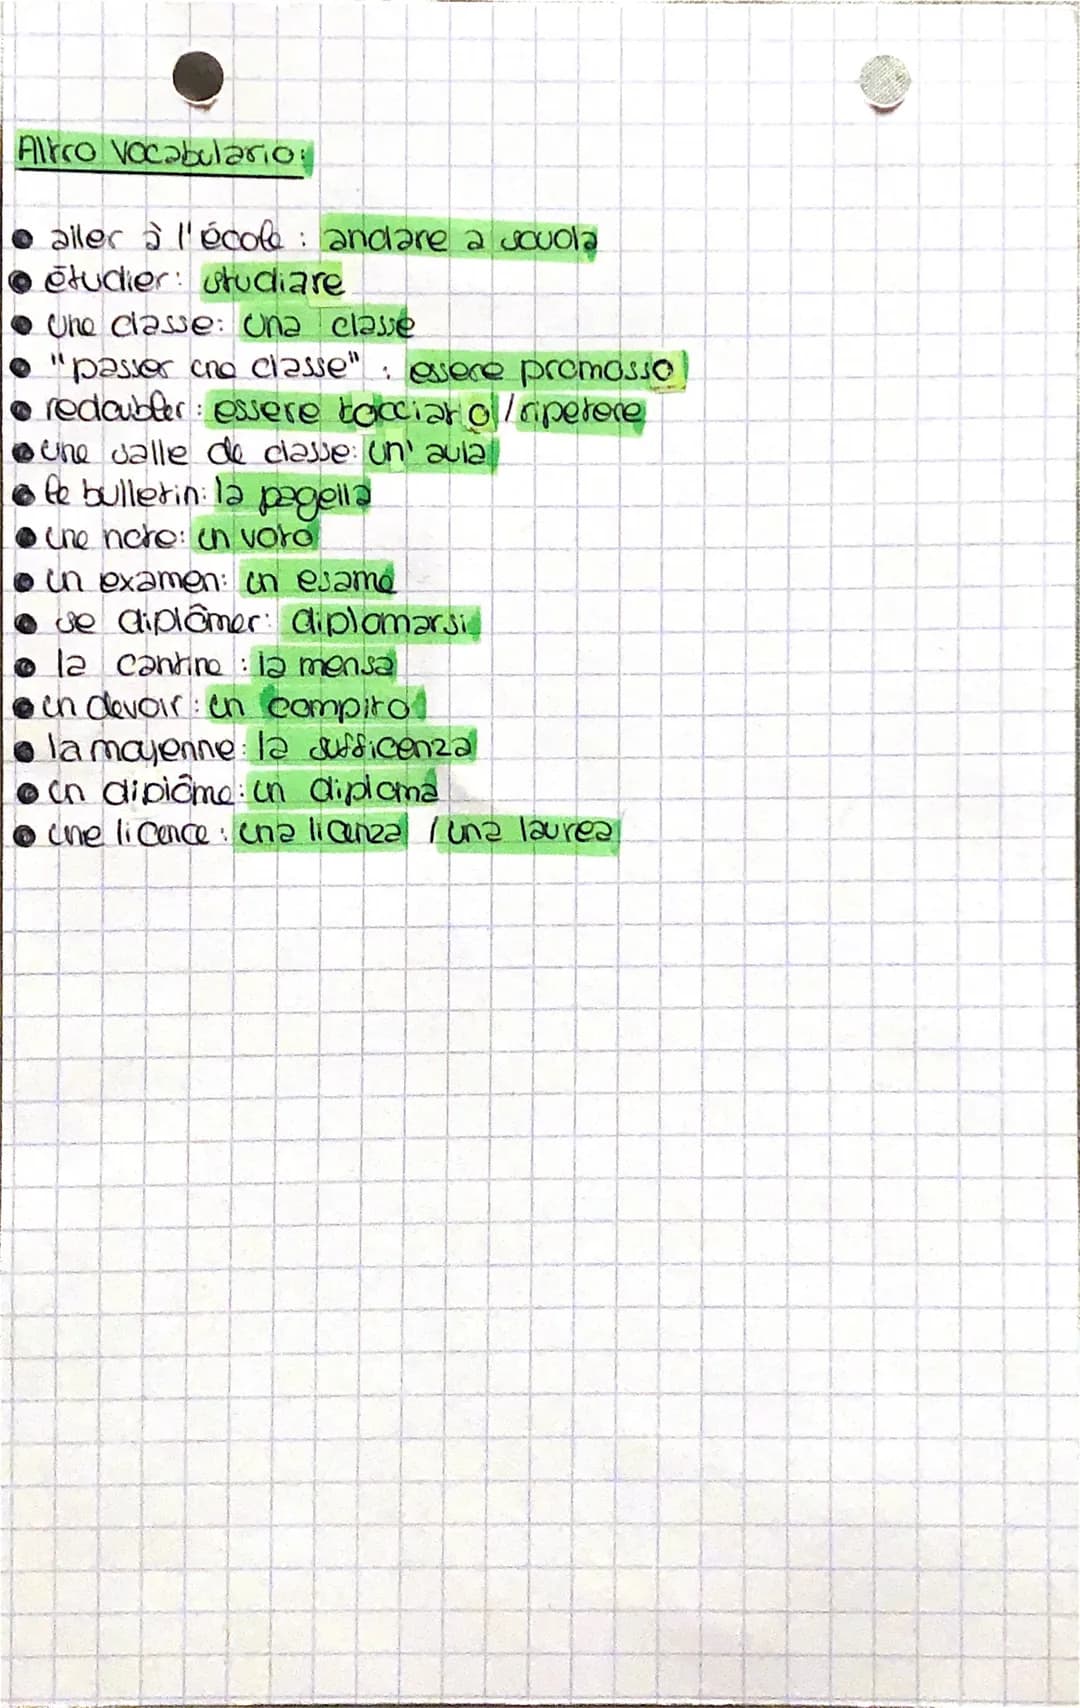 Altro vocabulario:
• aller à l'école : andare a scuola
• étudier: studiare
• une classe: una classe
• "passer une classe" : essere promosso
• redoubler: essere bocciato / ripetere
• une salle de classe: un' aula
• le bulletin: la pagella
• une note: un voto
• un examen: un esame
• se diplômer: diplomarsi
• la cantine : la mensa
• un devoir: un compito
• la moyenne: la sufficenza
• un diplôme: un diploma
• une licence: una licenza / una laurea